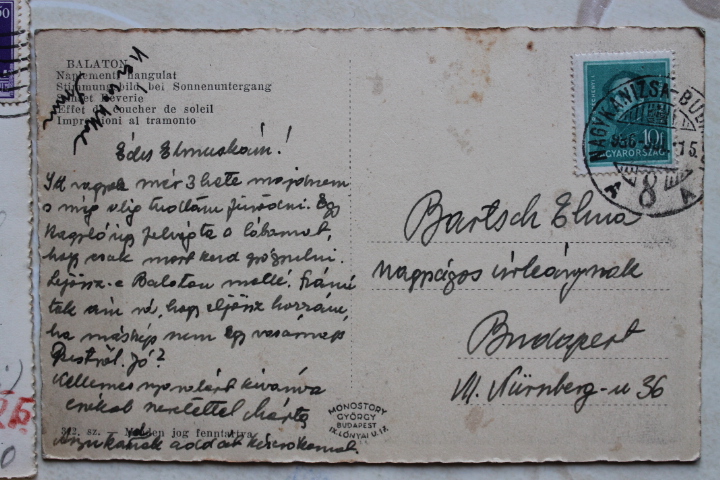 BALATON
Naplementi hangulat
Stimmungsbild bei Sonnenuntergang
Sunset Reverie
Effet de coucher de soleil
Impressioni al tramonto
Édes Elmuskám!
Itt vagyok már 3 hete majdnem
s még alig tudtam fürödni. Egy
kagyló úgy felvágta a lábamat,
hogy csak most kezd gyógyulni.
Lejössz-e Balaton mellé. Számí
tok rám, hogy eljössz hozzám,
ha máskép nem egy vasárnap
Pestről. Jó?
Kellemes nyaralást kívánva
csókol szeretettel Márta
Anyukának add át kézcsókomat.
312. sz. — Minden jog fenntartva
MONOSTORY
GYÖRGY
BUDAPEST
IX. LÓNYAI U. 17.
10f
MAGYARORSZÁG
NAGYKANIZSA-BUD
8
Bartsch Elma
nagyságos úrleánynak
Budapest
VI. Nürnberg-u 36
50